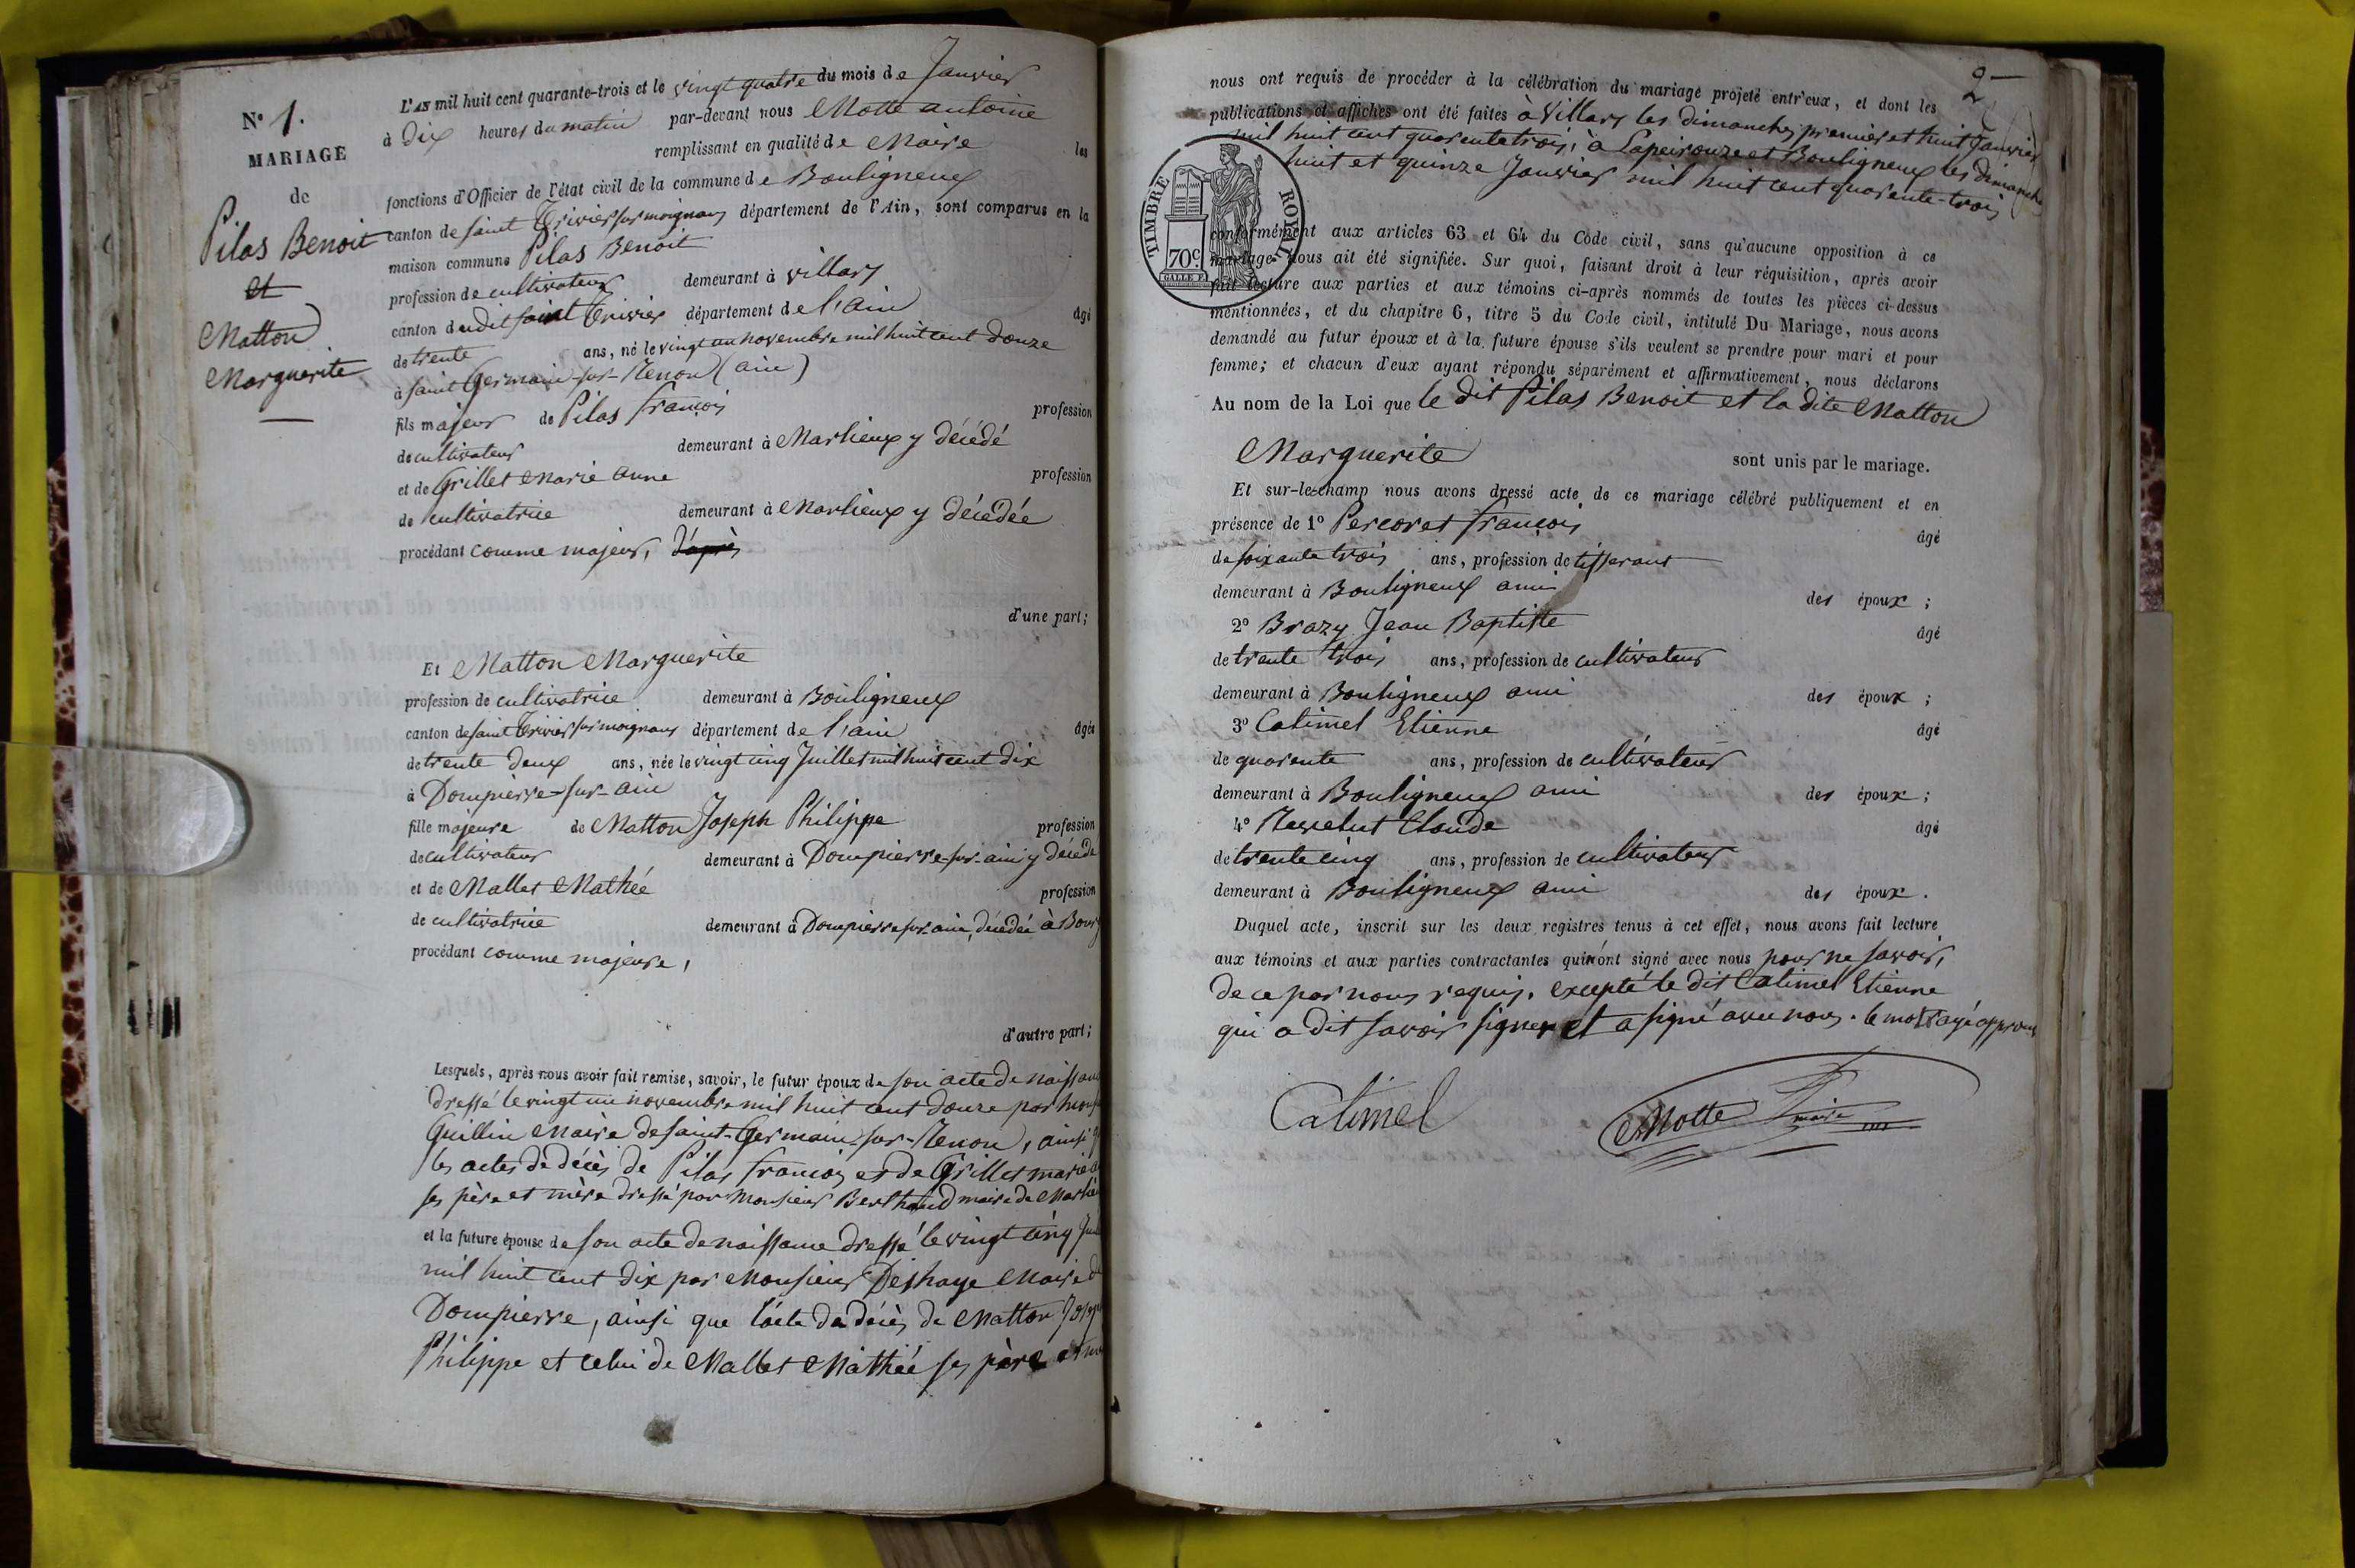 N° 1.
MARIAGE
de
Pilas Benoit
et
Matton
Marguerite
L'AN mil huit cent quarante-trois et le vingt quatre du mois de Janvier
à dix heures du matin par-devant nous Motte antoine
remplissant en qualité de Maire les
fonctions d'Officier de l'état civil de la commune de Bouligneux
canton de saint Trivier sur moignans département de l'Ain, sont comparus en la
maison commune Pilas Benoit
profession de cultivateur demeurant à villars
canton dudit saint Trivier département de l'ain âgé
de trente ans, né le vingt un novembre mil huit cent douze
à saint Germain-sur-Renon (ain)
fils majeur de Pilas françois profession
de cultivateur demeurant à Marlieux y décédé
et de Grillet Marie anne profession
de cultivatrice demeurant à Marlieux y décédée
procédant comme majeur, d'après
d'une part;
Et Matton Marguerite
profession de cultivatrice demeurant à Bouligneux
canton de saint Trivier sur moignans département de l'ain âgée
de trente deux ans, née le vingt cinq Juillet mil huit cent dix
à Dompierre-sur-ain
fille majeure de Matton Joseph Philippe profession
de cultivateur demeurant à Dompierre-sur-ain y décédé
et de Mallet Mathée profession
de cultivatrice demeurant à Dompierre sur ain, décédée à Bourg
procédant comme majeure,
d'autre part;
Lesquels, après nous avoir fait remise, savoir, le futur époux de son acte de naissance
dressé le vingt un novembre mil huit cent douze par
Guillin Maire de saint-Germain-sur-Renon, ainsi
les actes de décès de Pilas françois et de Grillet marie
ses père et mère dressé par Monsieur Berthaud maire de Marlieux
et la future épouse de son acte de naissance dressé le vingt cinq
mil huit cent dix par Monsieur Deshaye Maire de
Dompierre, ainsi que l'acte de décès de Matton Joseph
Philippe et celui de Mallet Mathée ses père et
2
nous ont requis de procéder à la célébration du mariage projeté entr'eux, et dont les
publications et affiches ont été faites à Villars les dimanches premier et huit Janvier
mil huit cent quarente trois; à Lapeirouze et Bouligneux les dimanches
huit et quinze Janvier mil huit cent quarente-trois
TIMBRE ROYAL
70c
conformément aux articles 63 et 64 du Code civil, sans qu'aucune opposition à ce
mariage nous ait été signifiée. Sur quoi, faisant droit à leur réquisition, après avoir
fait lecture aux parties et aux témoins ci-après nommés de toutes les pièces ci-dessus
mentionnées, et du chapitre 6, titre 5 du Code civil, intitulé Du Mariage, nous avons
demandé au futur époux et à la future épouse s'ils veulent se prendre pour mari et pour
femme; et chacun d'eux ayant répondu séparément et affirmativement, nous déclarons
Au nom de la Loi que le dit Pilas Benoit et la dite Matton
Marguerite sont unis par le mariage.
Et sur-le-champ nous avons dressé acte de ce mariage célébré publiquement et en
présence de 1° Percoret françois âgé
de soixante trois ans, profession de tisserant
demeurant à Bouligneux ami des époux;
2° Brazy Jean Baptiste âgé
de trente trois ans, profession de cultivateur
demeurant à Bouligneux ami des époux;
3° Catimel Etienne âgé
de quarente ans, profession de cultivateur
demeurant à Bouligneux ami des époux;
4° Claude âgé
de trente cinq ans, profession de cultivateur
demeurant à Bouligneux ami des époux.
Duquel acte, inscrit sur les deux registres tenus à cet effet, nous avons fait lecture
aux témoins et aux parties contractantes qui n'ont signé avec nous pour ne savoir,
de ce par nous requis, excepté le dit Catimel Etienne
qui a dit savoir signer et a signé avec nous. le mot rayé approuvé
Catimel
Motte maire